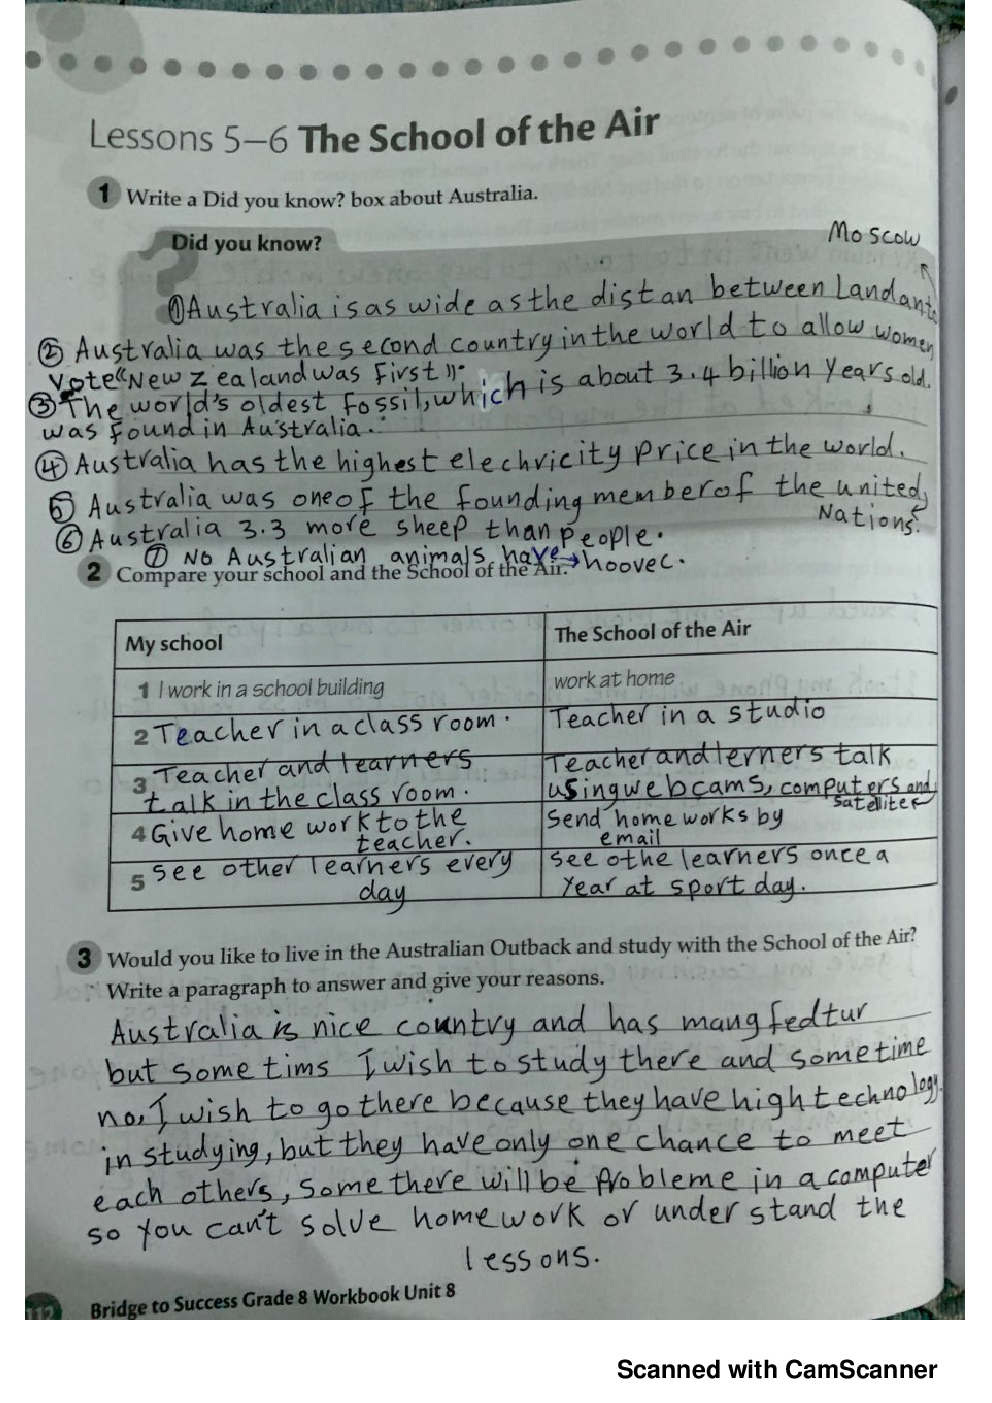 Lessons 5–6 The School of the Air
1 Write a Did you know? box about Australia.
Did you know?
Moscow
① Australia is as wide as the distan between Land and to
② Australia was the second country in the world to allow women
Vote "New Zealand was first".
③ The world's oldest fossil, which is about 3.4 billion years old.
was found in Australia.
④ Australia has the highest elechricity price in the world.
⑤ Australia was one of the founding member of the united
Nations.
⑥ Australia 3.3 more sheep than people.
⑦ No Australian animals have → hoovec.
2 Compare your school and the School of the Air.
My school
The School of the Air
1 I work in a school building
work at home
2 Teacher in a class room.
Teacher in a studio
3 Teacher and learners
talk in the class room.
Teacher and lerners talk
using webcams, computers and
Satellite
4 Give home work to the
teacher.
Send home works by
email
5 see other learners every
day
see othe learners once a
year at sport day.
3 Would you like to live in the Australian Outback and study with the School of the Air?
Write a paragraph to answer and give your reasons.
Australia is nice country and has mang fedtur
but some tims I wish to study there and sometime
no, I wish to go there because they have high technology
in studying, but they have only one chance to meet
each others, some there will be probleme in a computer
so you can't solve homework or understand the
lessons.
112
Bridge to Success Grade 8 Workbook Unit 8
Scanned with CamScanner